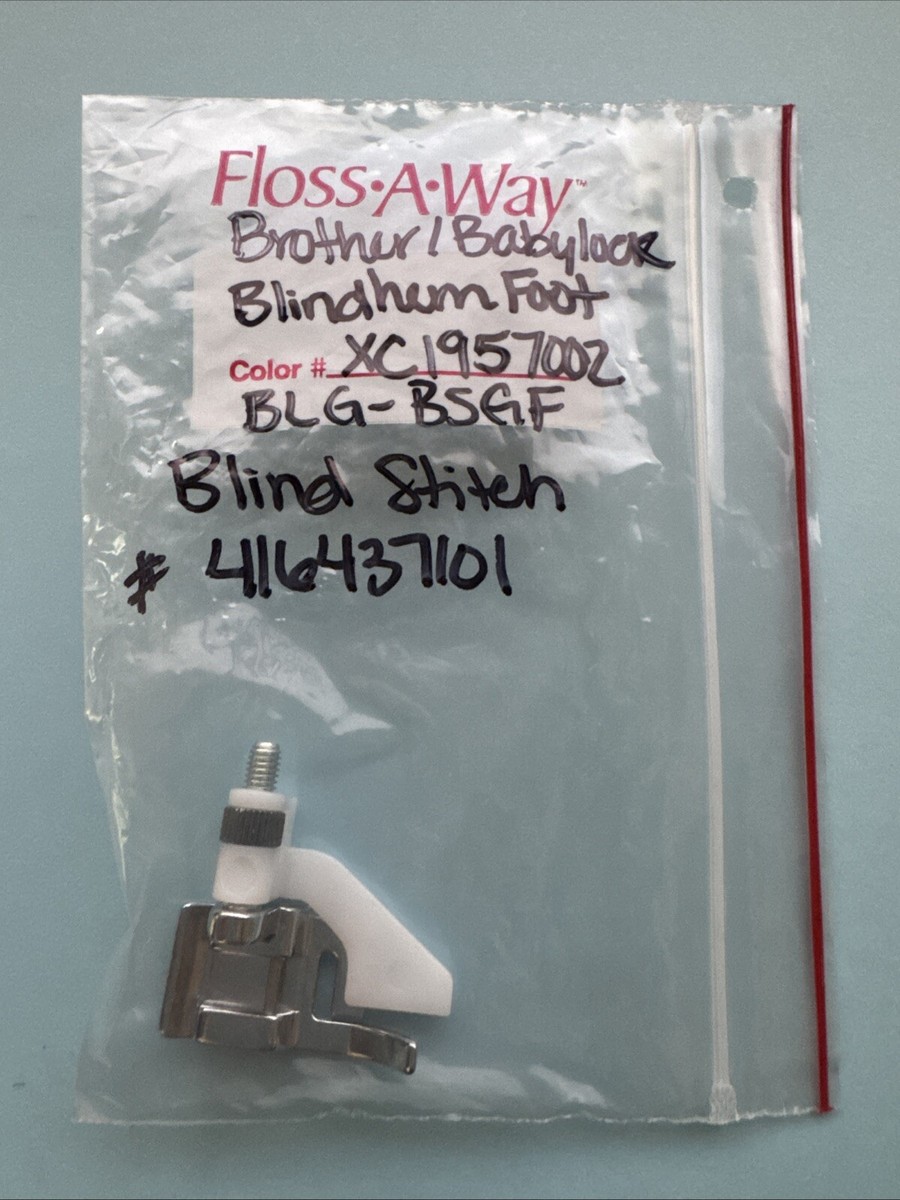 Floss·A·Way™
Brother/Babylock
Blindhem Foot
Color # XC1957002
BLG-BSGF
Blind Stitch
# 416437101